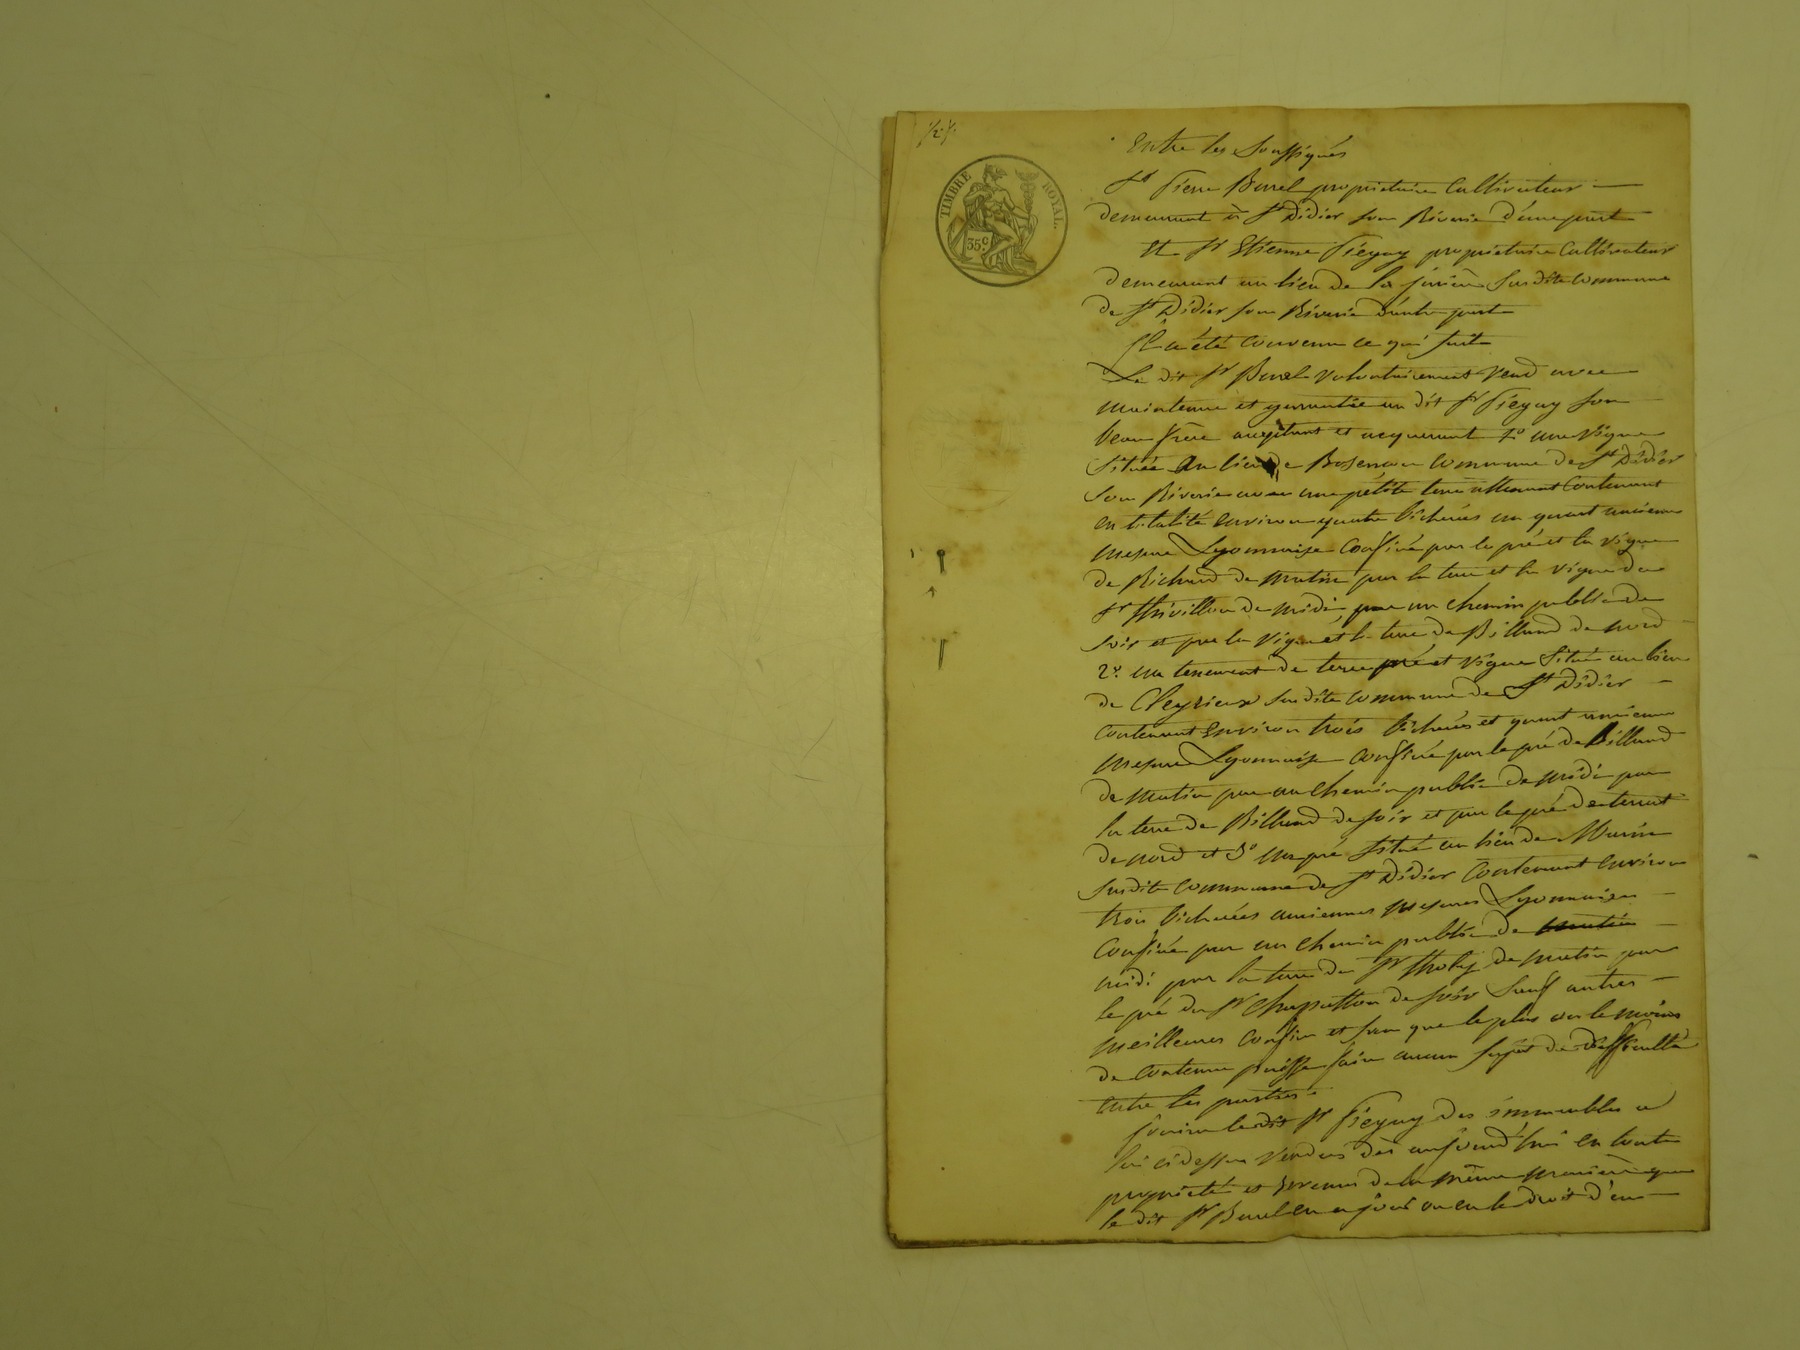 TIMBRE ROYAL.
35 c
Entre les Soussignés
Sr Pierre Burel proprietaire Cultivateur
demeurant à St Didier sous Riverie d'une part
Et Sr Etienne Piegay proprietaire Cultivateur
demeurant au lieu de la susdite Commune
de St Didier sous Riverie d'autre part
Il a été Convenu ce qui suit
Le dit Sr Burel volontairement Vend avec
maintenue et garantie au dit Sr Piegay son
beau frère acceptant et acquerant 1o une Vigne
située au lieu de Commune de St Didier
sous Riverie avec une petite terre attenant Contenant
en totalité Environ quatre bicherées un quart ancienne
mesure Lyonnaise Confiné par le pré et la vigne
de Richard de matin par la terre et la vigne de
Sr Thivillon de midi par un chemin public de
soir et par la vigne et la terre de Billard de nord
2o un tenement de terre pré et vigne Situé au lieu
de Cleyrieux susdite commune de St Didier
Contenant Environ trois bicherées et quart ancienne
mesure Lyonnaise Confiné par le pré de Billard
de matin par un chemin public de midi par
la terre de Billard de soir et par le pré de
de nord et 3o un pré situé au lieu de
susdite Commune de St Didier Contenant Environ
trois bicherées anciennes mesures Lyonnaises
Confiné par un chemin public de matin
midi par la terre de Sr de matin par
le pré du Sr de soir Sauf autres
meilleures Confins et sans que le plus ou le moins
de Contenue puisse faire aucun sujet de difficulté
entre les parties.
le dit Sr Piegay des immeubles a
lui cidessus Vendus dès aujourd'hui en toute
propriété et de la même manière que
le dit Sr Burel en a joui ou eu le droit d'en